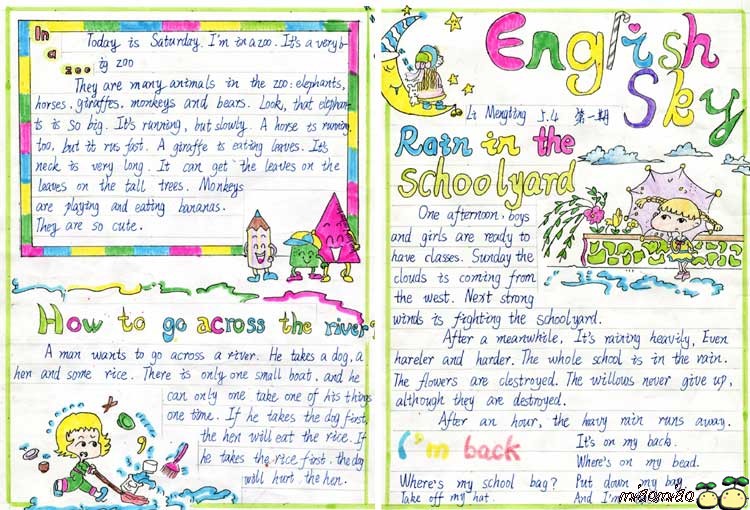 In a zoo
Today is Saturday. I'm in a zoo. It's a very b-
ig zoo
They are many animals in the zoo: elephants,
horses, giraffes, monkeys and bears. Look, that elephan-
ts is so big. It's running, but slowly. A horse is running,
too, but it rus fast. A giraffe is eating leaves. It's
neck is very long. It can get the leaves on the
leaves on the tall trees. Monkeys
are playing and eating bananas.
They are so cute.
How to go across the river?
A man wants to go across a river. He takes a dog, a
hen and some rice. There is only one small boat, and he
can only one take one of his things
one time. If he takes the dog first,
the hen will eat the rice. If
he takes the rice first, the dog
will hurt the hen.
English
Sky
Li Mengting 5.4 第一期
Rain in the
schoolyard
One afternoon, boys
and girls are ready to
have classes. Sunday the
clouds is coming from
the west. Next strong
winds is fighting the schoolyard.
After a meanwhile, It's raining heavily, Even
hareler and harder. The whole school is in the rain.
The flowers are clestroyed. The willows never give up,
although they are destroyed.
After an hour, the havy rain runs away.
I'm back
Where's my school bag?
Take off my hat.
It's on my back.
Where's on my bead.
Put down my bag
And I'm
miaomiao